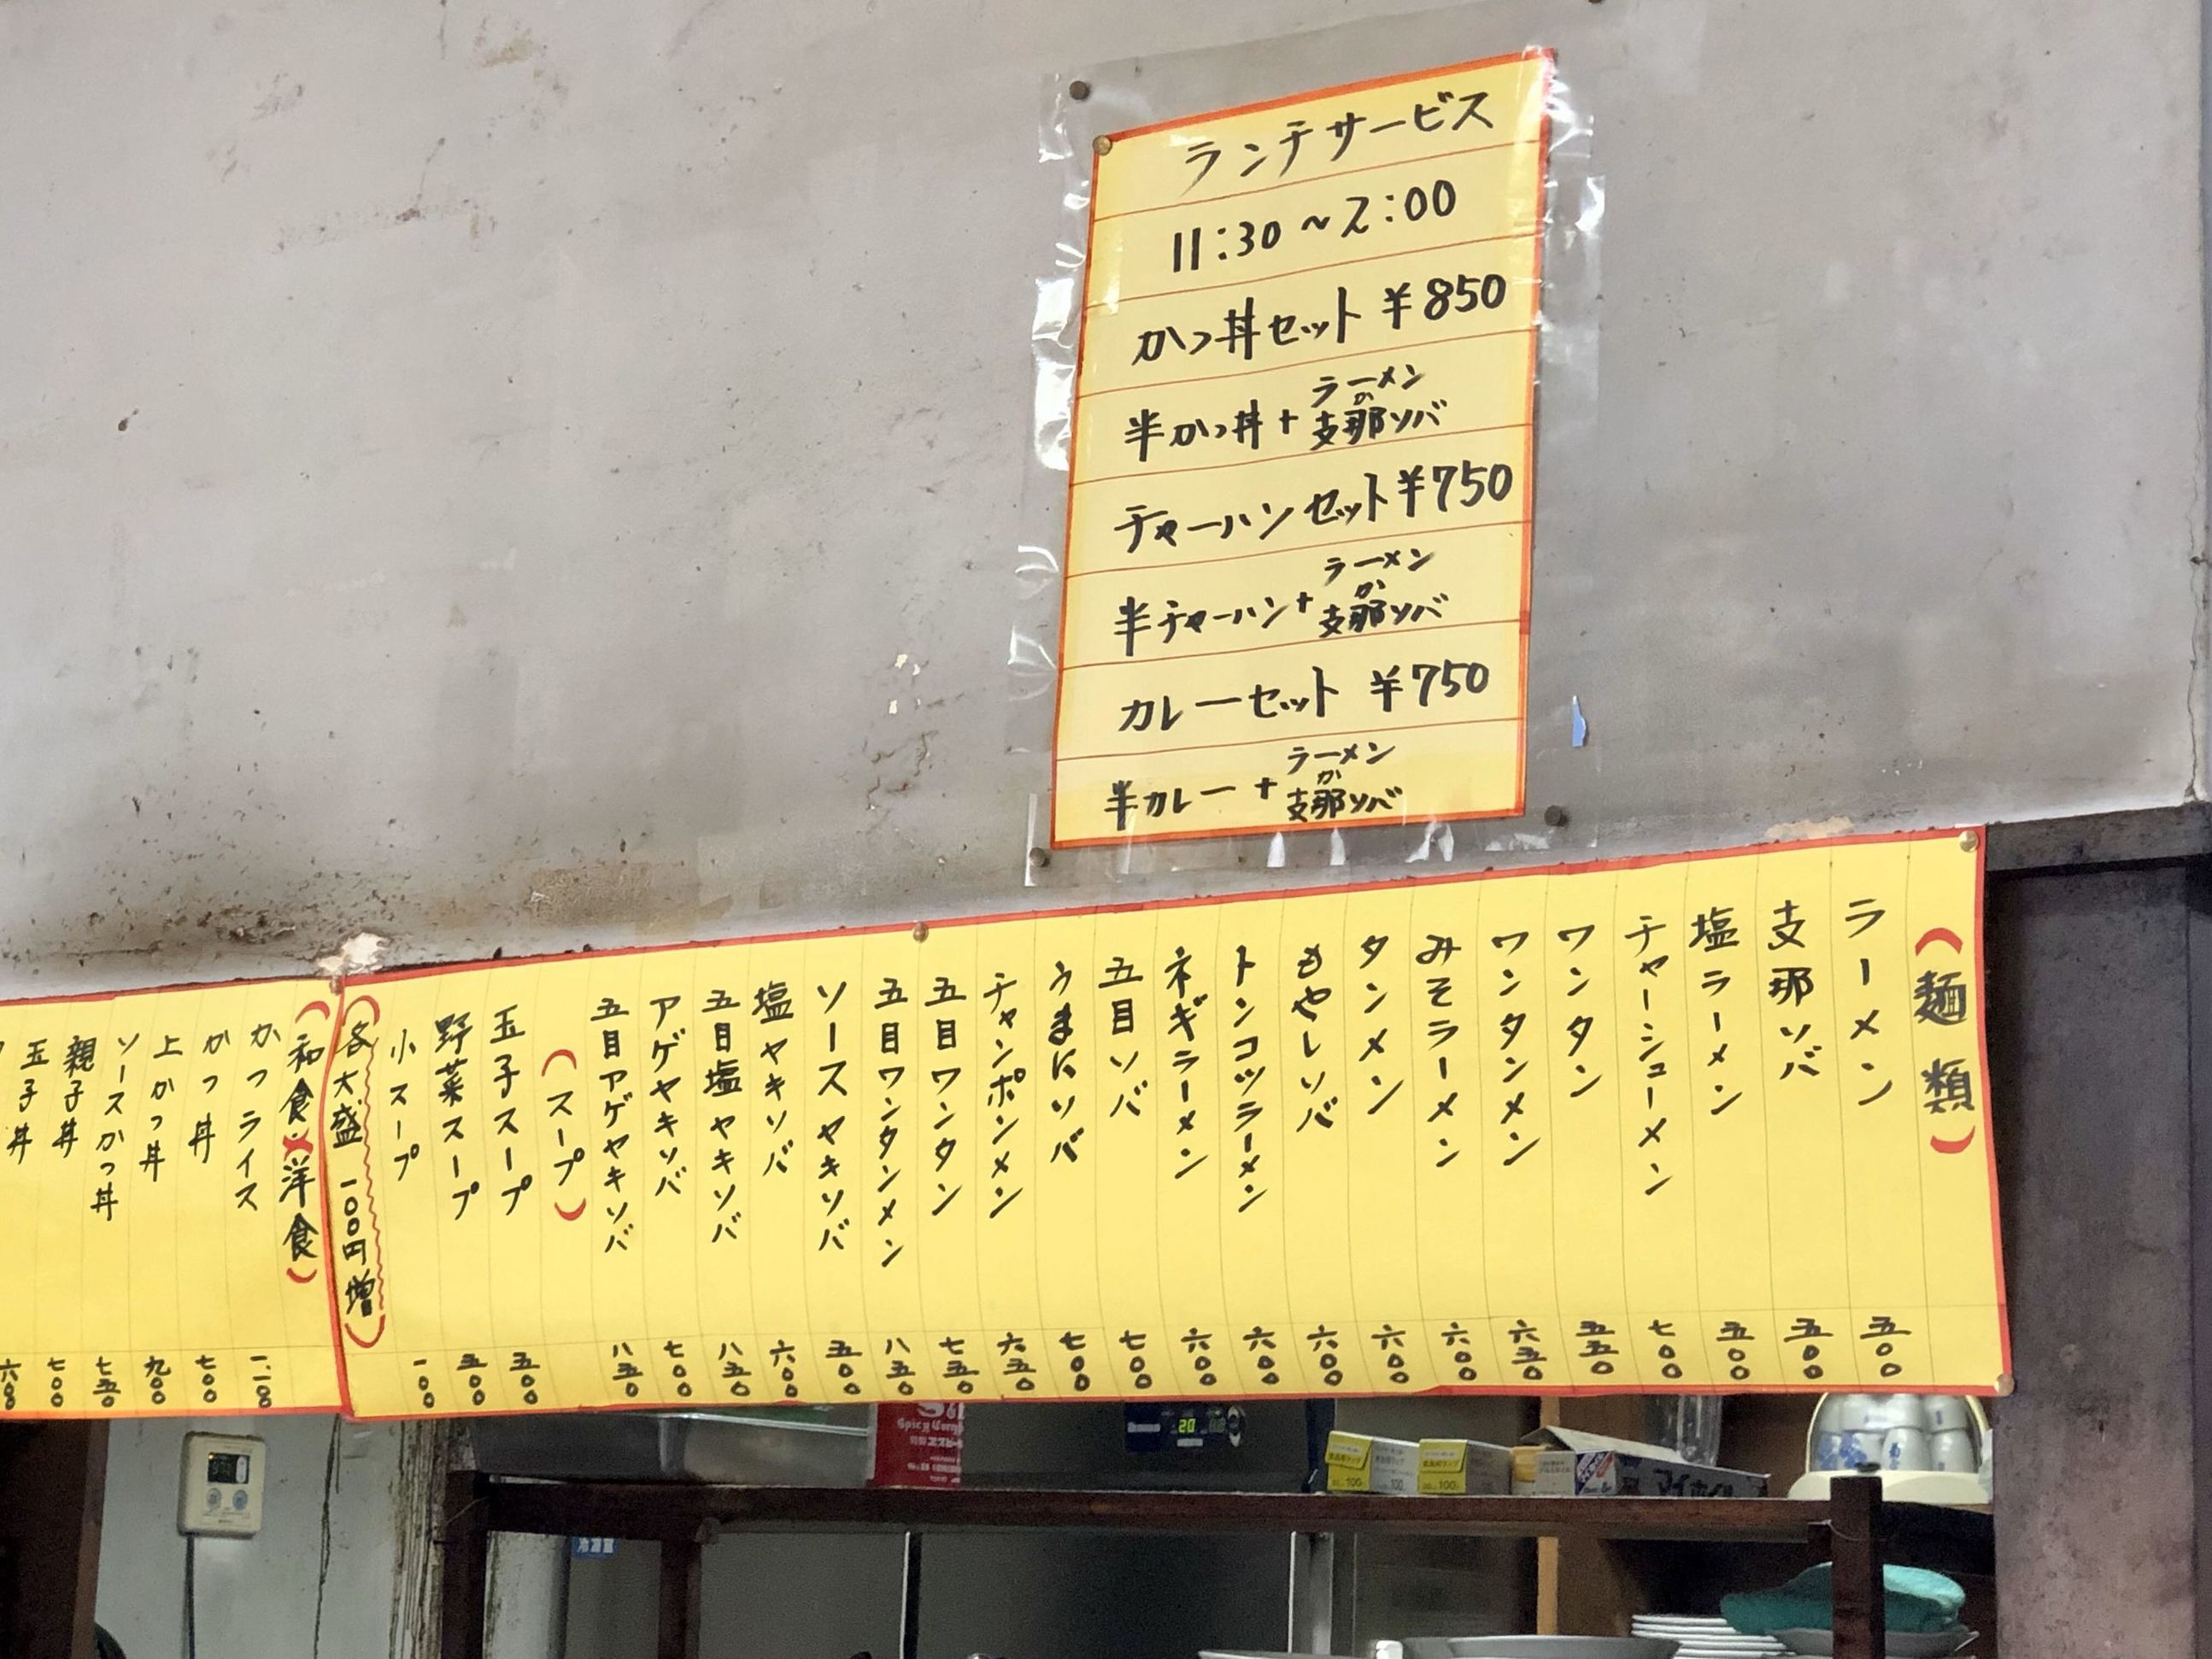 ランチサービス
11:30～2:00
かつ丼セット ¥850
半かつ丼+ラーメンか支那ソバ
チャーハンセット¥750
半チャーハン+ラーメンか支那ソバ
カレーセット ¥750
半カレー+ラーメンか支那ソバ
(麺類)
ラーメン 五〇〇
支那ソバ 五〇〇
塩ラーメン 五〇〇
チャーシューメン 七〇〇
ワンタン 五五〇
ワンタンメン 六五〇
みそラーメン 六〇〇
タンメン 六〇〇
もやしソバ 六〇〇
トンコツラーメン 六〇〇
ネギラーメン 六〇〇
五目ソバ 七〇〇
うまにソバ 七〇〇
チャンポンメン 六五〇
五目ワンタン 七五〇
五目ワンタンメン 八五〇
ソースヤキソバ 五〇〇
塩ヤキソバ 六〇〇
五目塩ヤキソバ 八五〇
アゲヤキソバ 七〇〇
五目アゲヤキソバ 八五〇
(スープ)
玉子スープ 五〇〇
野菜スープ 五〇〇
小スープ 一〇〇
(各大盛 一〇〇円増)
(和食・洋食)
かつライス 一、一〇〇
かつ丼 七〇〇
上かつ丼 九〇〇
ソースかつ丼 七五〇
親子丼 七〇〇
玉子丼 六〇〇
20
冷凍室
マイホイル